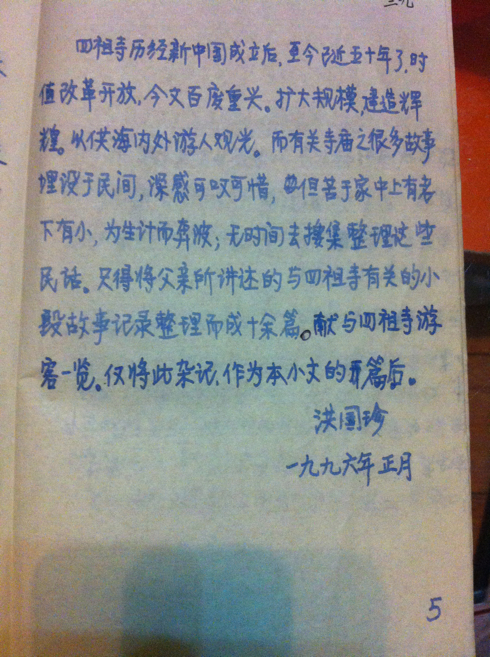 四祖寺历经新中国成立后,至今已近五十年了,时
值改革开放,今又百废重兴。扩大规模,建造辉
煌。以供海内外游人观光。而有关寺庙之很多故事
埋没于民间,深感可叹可惜,但苦于家中上有老
下有小,为生计而奔波;无时间去搜集整理这些
民话。只得将父亲所讲述的与四祖寺有关的小
段故事记录整理而成十余篇。献与四祖寺游
客一览。仅将此杂记,作为本小文的开篇后。
洪国珍
一九九六年正月
5